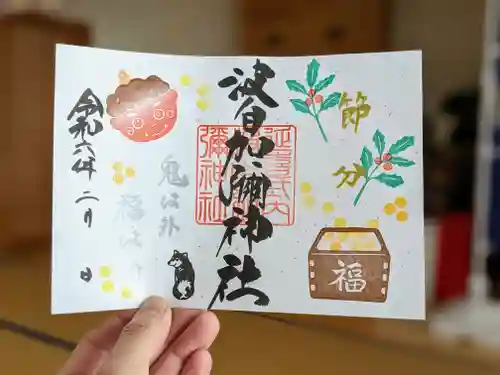 節分
福
延喜式内
彌神社
波自加彌神社
鬼は外
福は
令和六年二月 日